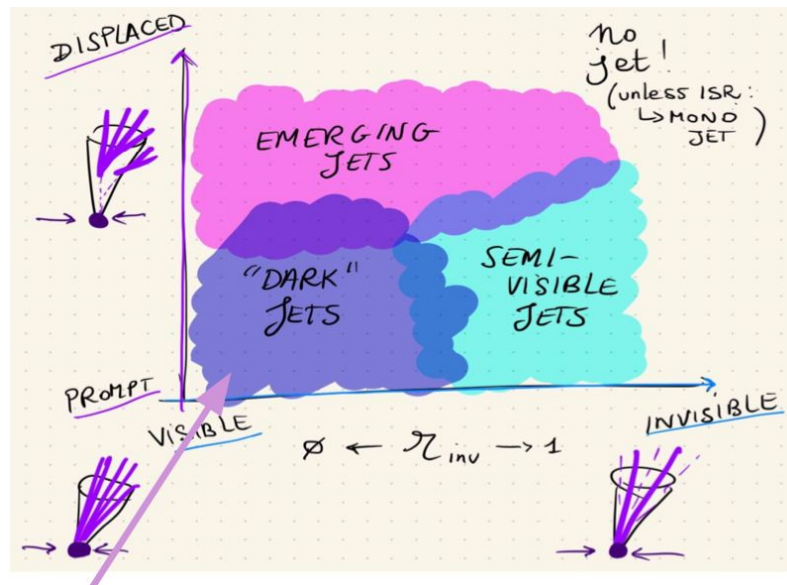 DISPLACED
no
jet!
(unless ISR:
↳ MONO
JET)
EMERGING
JETS
SEMI-
VISIBLE
JETS
"DARK"
JETS
PROMPT
VISIBLE
INVISIBLE
∅ ← r_inv → 1